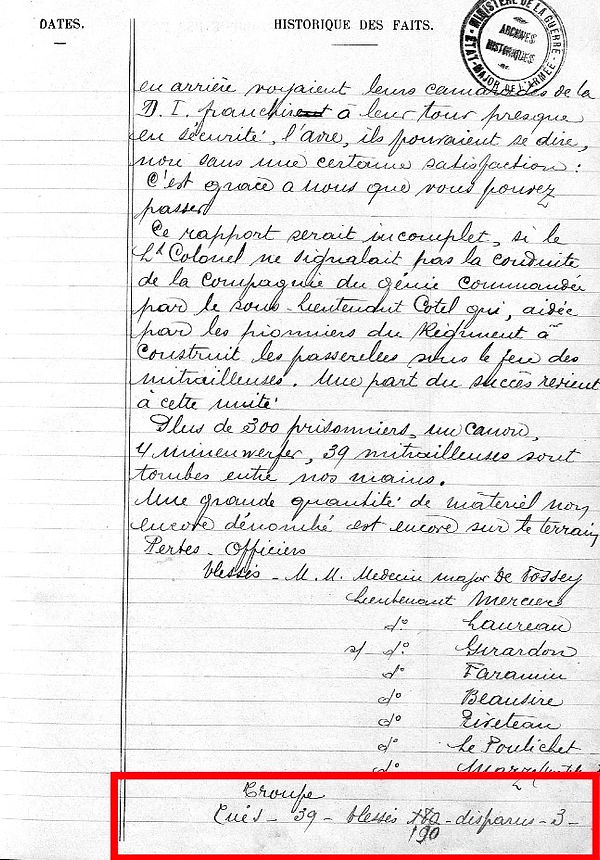 DATES.
HISTORIQUE DES FAITS.
MINISTÈRE DE LA GUERRE
ARCHIVES
HISTORIQUES
ÉTAT-MAJOR DE L'ARMÉE
en arrière voyaient leurs camarades de la
D. I. franchir à leur tour presque
en sécurité, l'avre, ils pouvaient se dire,
non sans une certaine satisfaction :
C'est grace a nous que vous pouvez
passer
Ce rapport serait incomplet, si le
Lt Colonel ne signalait pas la conduite
de la compagnie du génie commandée
par le sous-lieutenant Cotel qui, aidée
par les pionniers du Régiment à
construit les passerelles sous le feu des
mitrailleuses. Une part du succès revient
à cette unité
Plus de 300 prisonniers, un canon,
4 minenwerfer, 39 mitrailleuses sont
tombes entre nos mains.
Une grande quantité de matériel non
encore dénombré est encore sur le terrain
Pertes - Officiers
blessés - M. M. Medecin major De Fossey
Lieutenant Mercier
do Laureau
s/ do Girardon
do Faramin
do Beausire
do Riveteau
do Le Poulichet
do
Troupe
Tués - 39 - blessés - disparus - 3 -
190